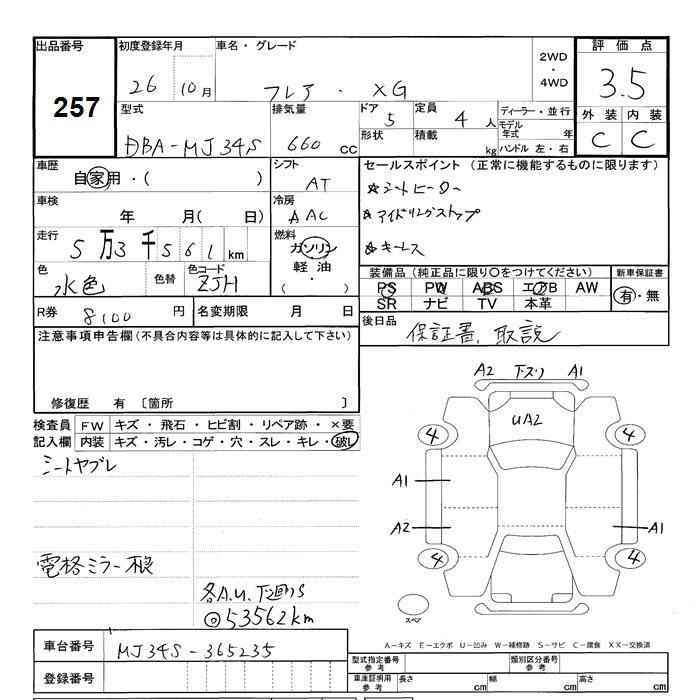 出品番号 初度登録年月 車名・グレード 2WD・4WD 評価点
257 26年 10月 フレア・XG 3.5
型式 排気量 ドア 定員 ディーラー・並行 外装 内装
DBA-MJ34S 660cc 5 4人 モデル年式 年 C C
形状 積載 kg ハンドル 左・右
車歴 シフト セールスポイント (正常に機能するものに限ります)
自家用・( ) AT ☆シートヒーター
車検 年 月( 日) 冷房 AAC ☆アイドリングストップ
走行 5万3千561km 燃料 ガソリン ☆キーレス
色 色替 色コード 軽油・( ) 装備品(純正品に限り○をつけてください) 新車保証書
水色 ZJH PS PW ABS エアB AW 有・無
SR ナビ TV 本革
R券 8100円 名変期限 月 日 後日品
注意事項申告欄(不具合内容等は具体的に記入して下さい) 保証書、取説
修復歴 有 〔箇所 〕
A2 下スリ A1
UA2
4 4
A1
A2 A1
4 4
スペア
検査員 FW キズ・飛石・ヒビ割・リペア跡・×要
記入欄 内装 キズ・汚レ・コゲ・穴・スレ・キレ・破レ
シートヤブレ
電格ミラー不良
各A.U.下廻りS
◎53562km
A-キズ E-エクボ U-凹み W-補修跡 S-サビ C-腐食 XX-交換済
車台番号 MJ34S-365235
型式指定番号 参考 類別区分番号 参考
登録番号 車庫証明用 参考 長さ cm 幅 cm 高さ cm